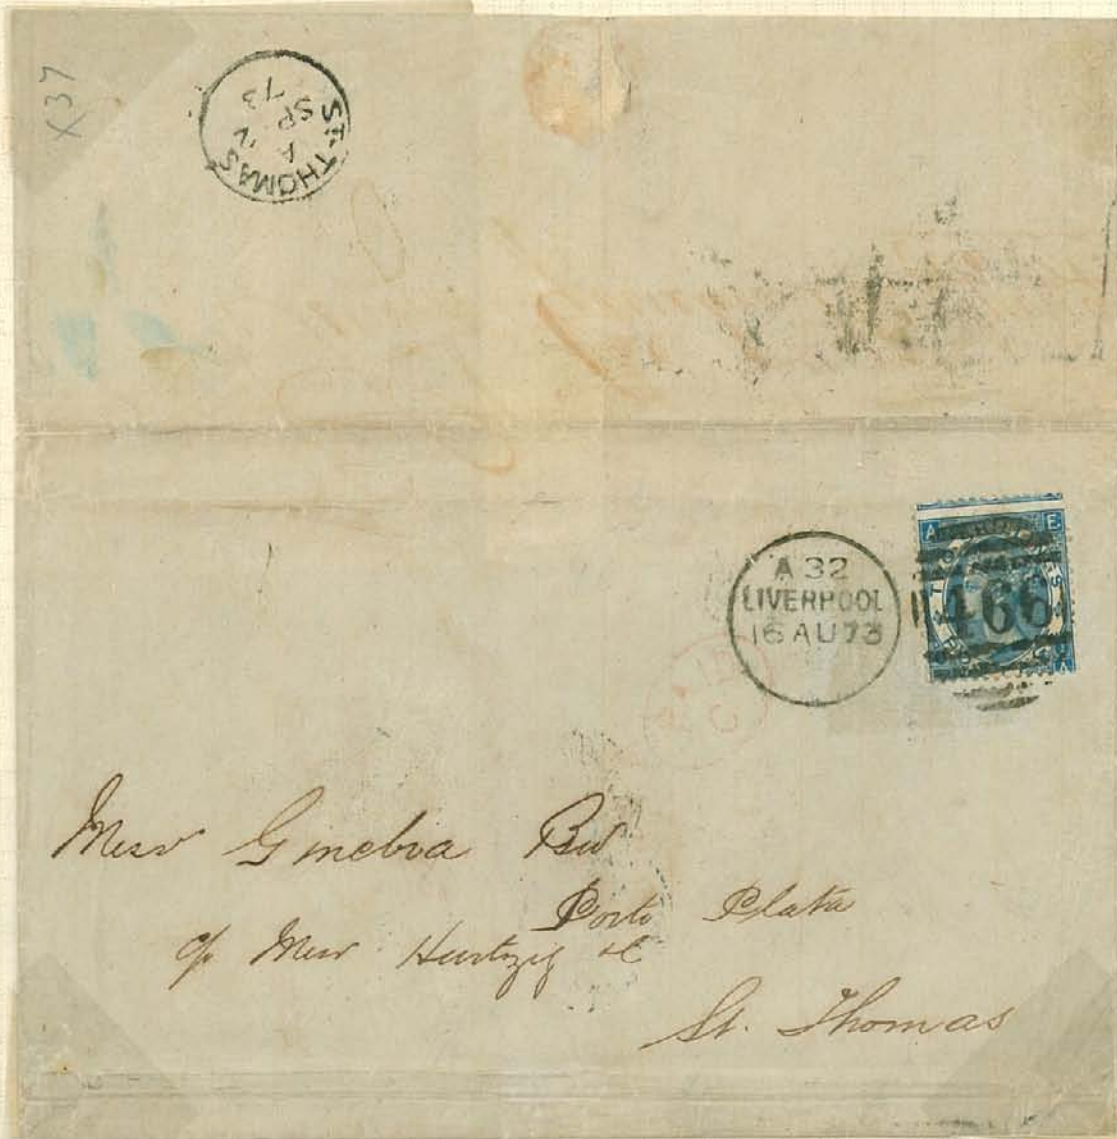 X37
ST. THOMAS
A
SP 2
73
A 32
LIVERPOOL
16 AU 73
466
A E
Messrs Ginebra Bro
Porto Plata
c/o Messrs Hurtzig & C
St. Thomas